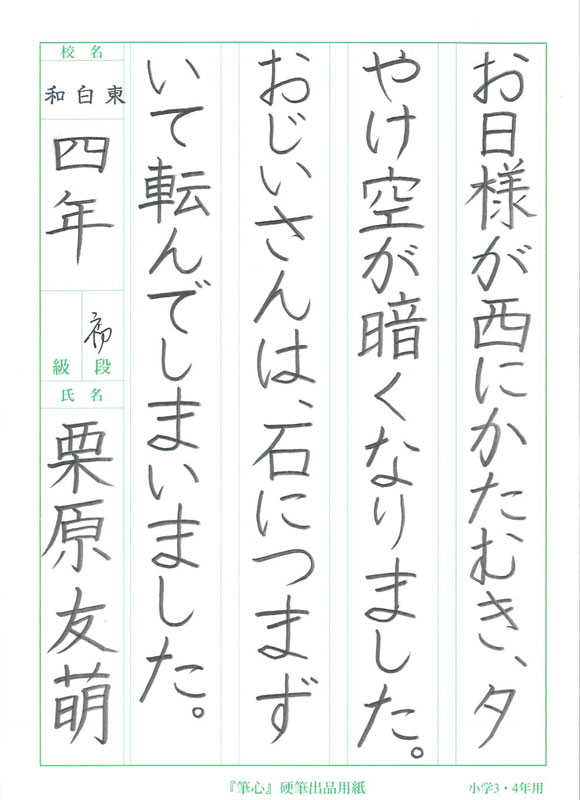 お日様が西にかたむき、夕
やけ空が暗くなりました。
おじいさんは、石につまず
いて転んでしまいました。
校名
和白東
四年
初
級 段
氏名
栗原友萌
『筆心』硬筆出品用紙
小学3・4年用